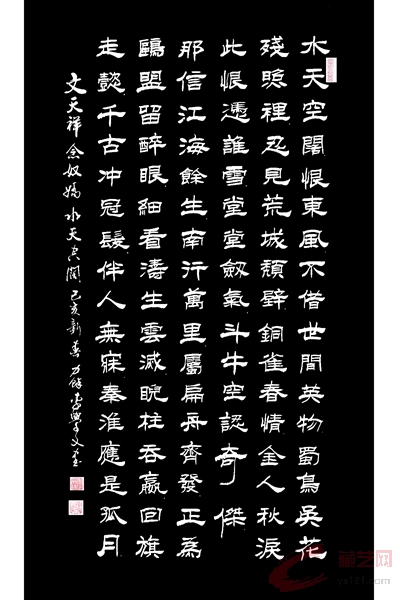 水天空闊恨東風不借世間英物蜀鳥吳花
殘照裡忍見荒城頹壁銅雀春情金人秋淚
此恨憑誰雪堂堂劍氣斗牛空認奇傑
那信江海餘生南行萬里屬扁舟齊發正為
鷗盟留醉眼細看濤生雲滅睨柱吞嬴回旗
走懿千古冲冠髮伴人無寐秦淮應是孤月
文天祥念奴嬌水天空闊己亥新春